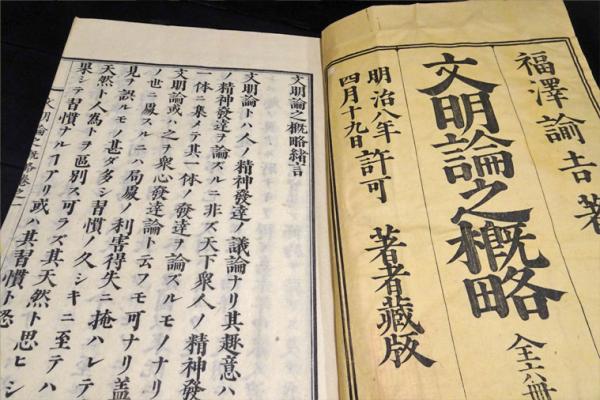 福澤諭吉著
文明論之概略 全六冊
明治八年
四月十九日 許可 著者藏版
文明論之概略緒言
文明論トハ人ノ精神發達ノ議論ナリ其趣意ハ
ノ精神發達ヲ論ズルニ非ズ天下衆人ノ精神發
一体ニ集メテ其一体ノ發達ヲ論ズルモノナリ
文明論或ハ之ヲ衆心發達論ト云フモ可ナリ蓋
ノ世ニ處スルニハ局處ノ利害得失ニ掩ハレテ
見ヲ誤ルモノ甚ダ多シ習慣ノ久シキニ至テハ
天然ト人為トヲ區別ス可ラズ其天然ト思ヒシ
果シテ習慣ナルヿアリ或ハ其習慣ト恐
文明論之概略卷之一